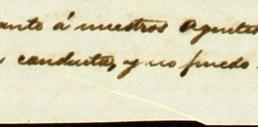 anto á nuestros Agentes
conducta, y no puedo